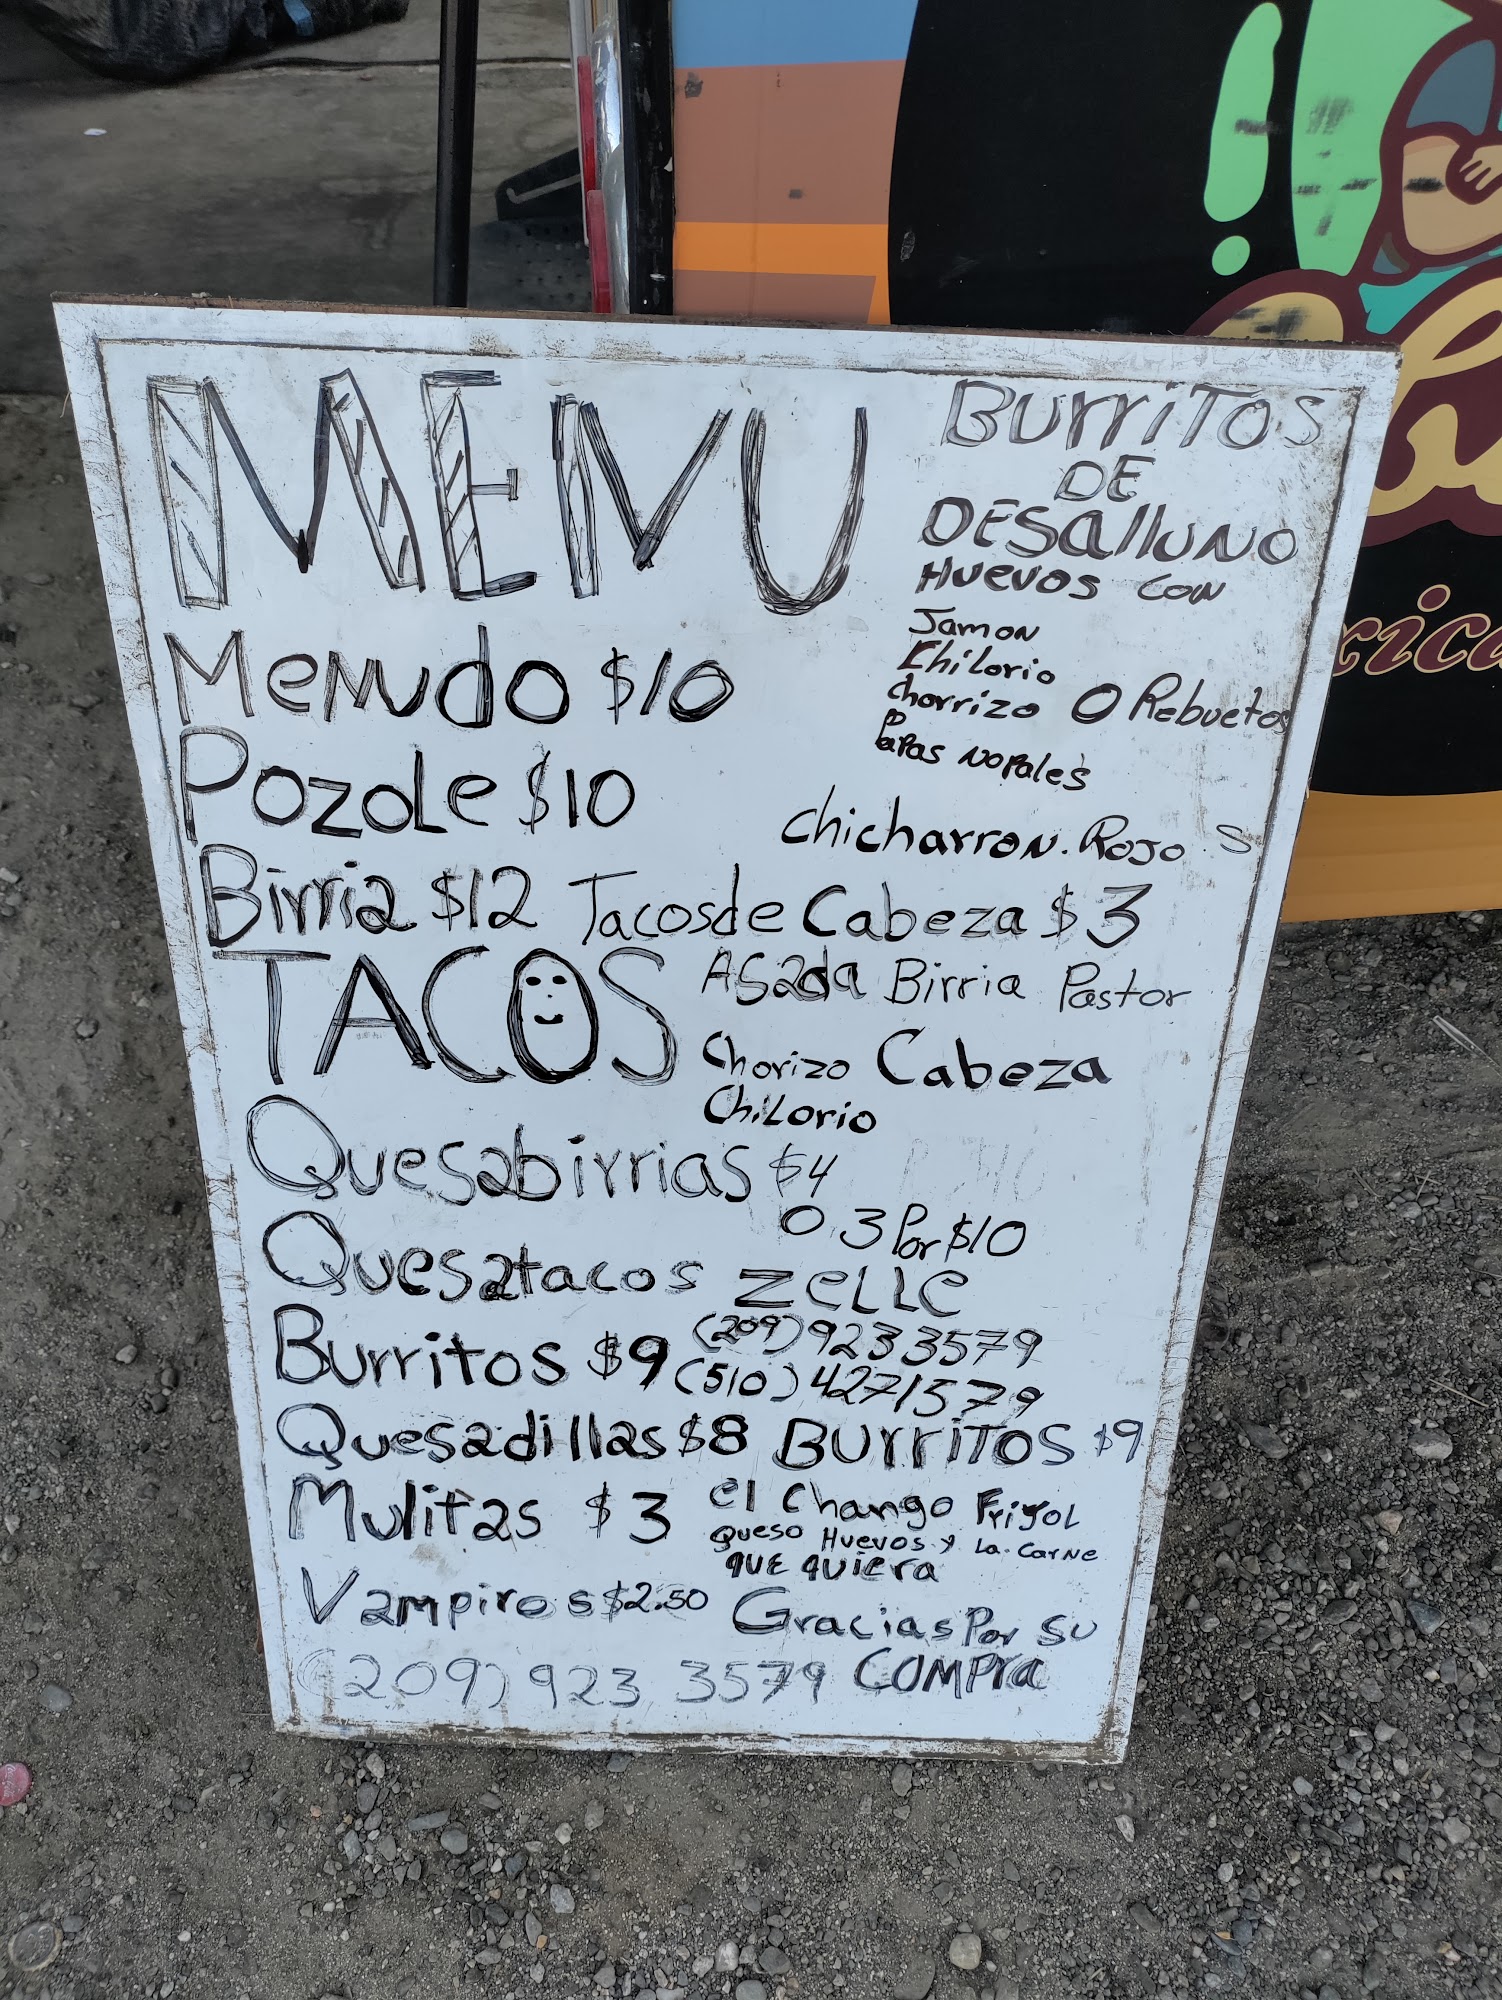 MENU
BurriTos
DE
DESallUNO
HUEVOS CON
Jamon
Chilorio
chorrizo O Rebuetos
Papas NoPales
chicharron. Rojo S
Menudo $10
Pozole $10
Birria $12 Tacos de Cabeza $3
TACOS Asada Birria Pastor
Chorizo Cabeza
ChiLorio
Quesabirrias $4
O 3 Por $10
Quesatacos ZeLLe
(209) 923 3579
Burritos $9 (510) 427 1579
Quesadillas $8 BURRiTOS $9
Mulitas $3 el Chango Frijol
Queso Huevos y La Carne
QUE QUiera
Vampiros $2.50 Gracias Por su
(209) 923 3579 COMPra